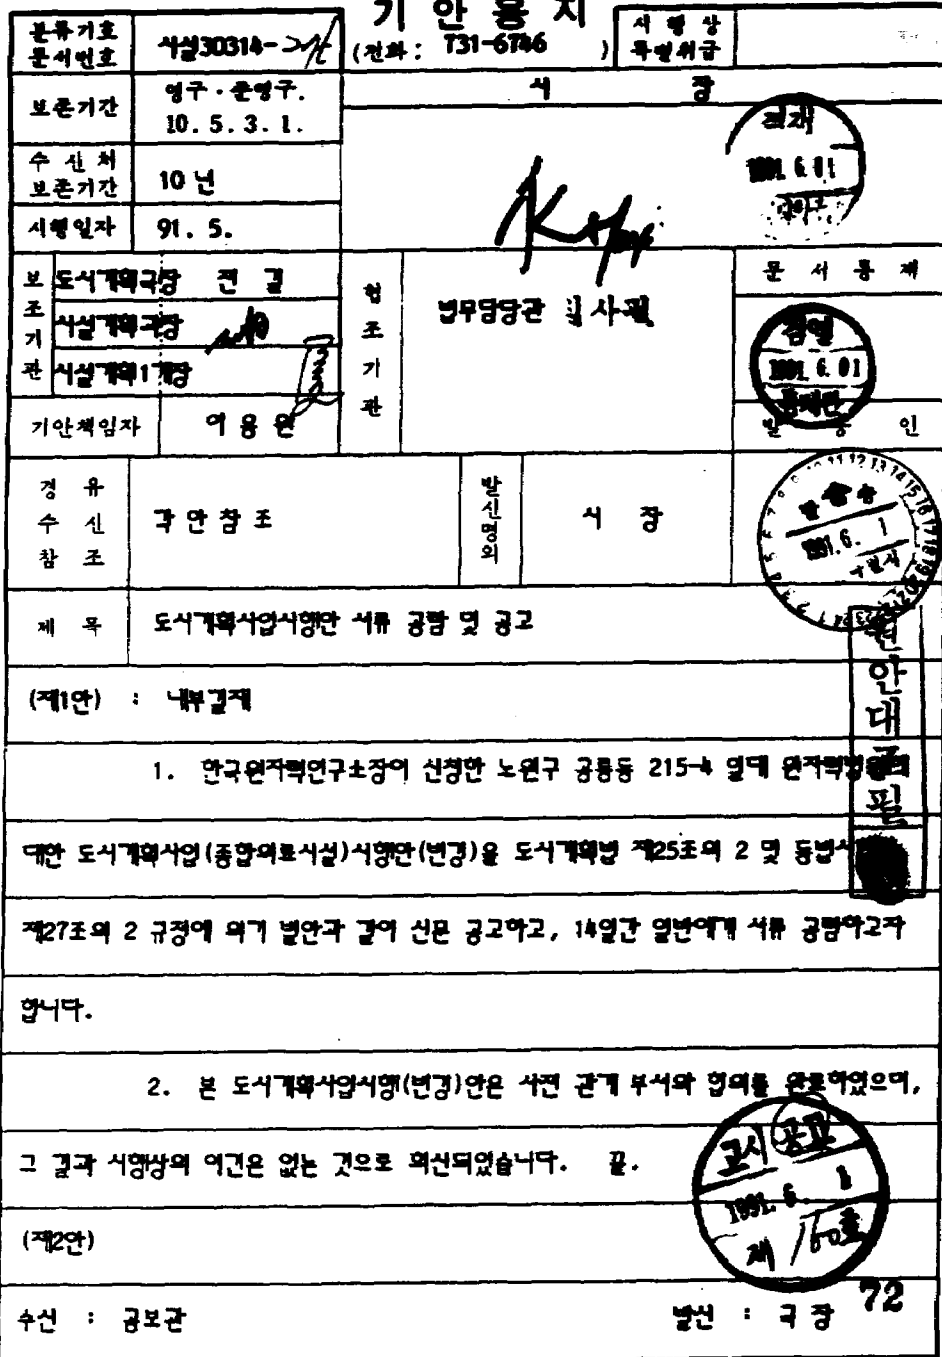 기 안 용 지
분류기호
문서번호
시설30314-
(전화 : 731-6746 )
시 행 상
특별취급
보존기간
영구·준영구.
10. 5. 3. 1.
시 장
수 신 처
보존기간
10 년
시행일자
91. 5.
결재
1991. 6. 01
보조기관
도시계획국장 전 결
시설계획과장
시설계획1계장
협조기관
법무담당관
문 서 통 제
검열
1991. 6. 01
통제관
기안책임자
이 용 원
발 송 인
경 유
수 신
참 조
각 안 참 조
발신명의
시 장
발 송
1991. 6. 1
제 목
도시계획사업시행안 서류 공람 및 공고
(제1안) : 내부결재
1. 한국원자력연구소장이 신청한 노원구 공릉동 215-4 일대 원자력병원에
대한 도시계획사업(종합의료시설)시행안(변경)을 도시계획법 제25조의 2 및 동법시
제27조의 2 규정에 의거 별안과 같이 신문 공고하고, 14일간 일반에게 서류 공람하고자
합니다.
2. 본 도시계획사업시행(변경)안은 사전 관계 부서와 협의를 완료하였으며,
그 결과 시행상의 이견은 없는 것으로 회신되었습니다. 끝.
고시 공고
1991. 6. 1
제 160호
(제2안)
수신 : 공보관
발신 : 국 장
72